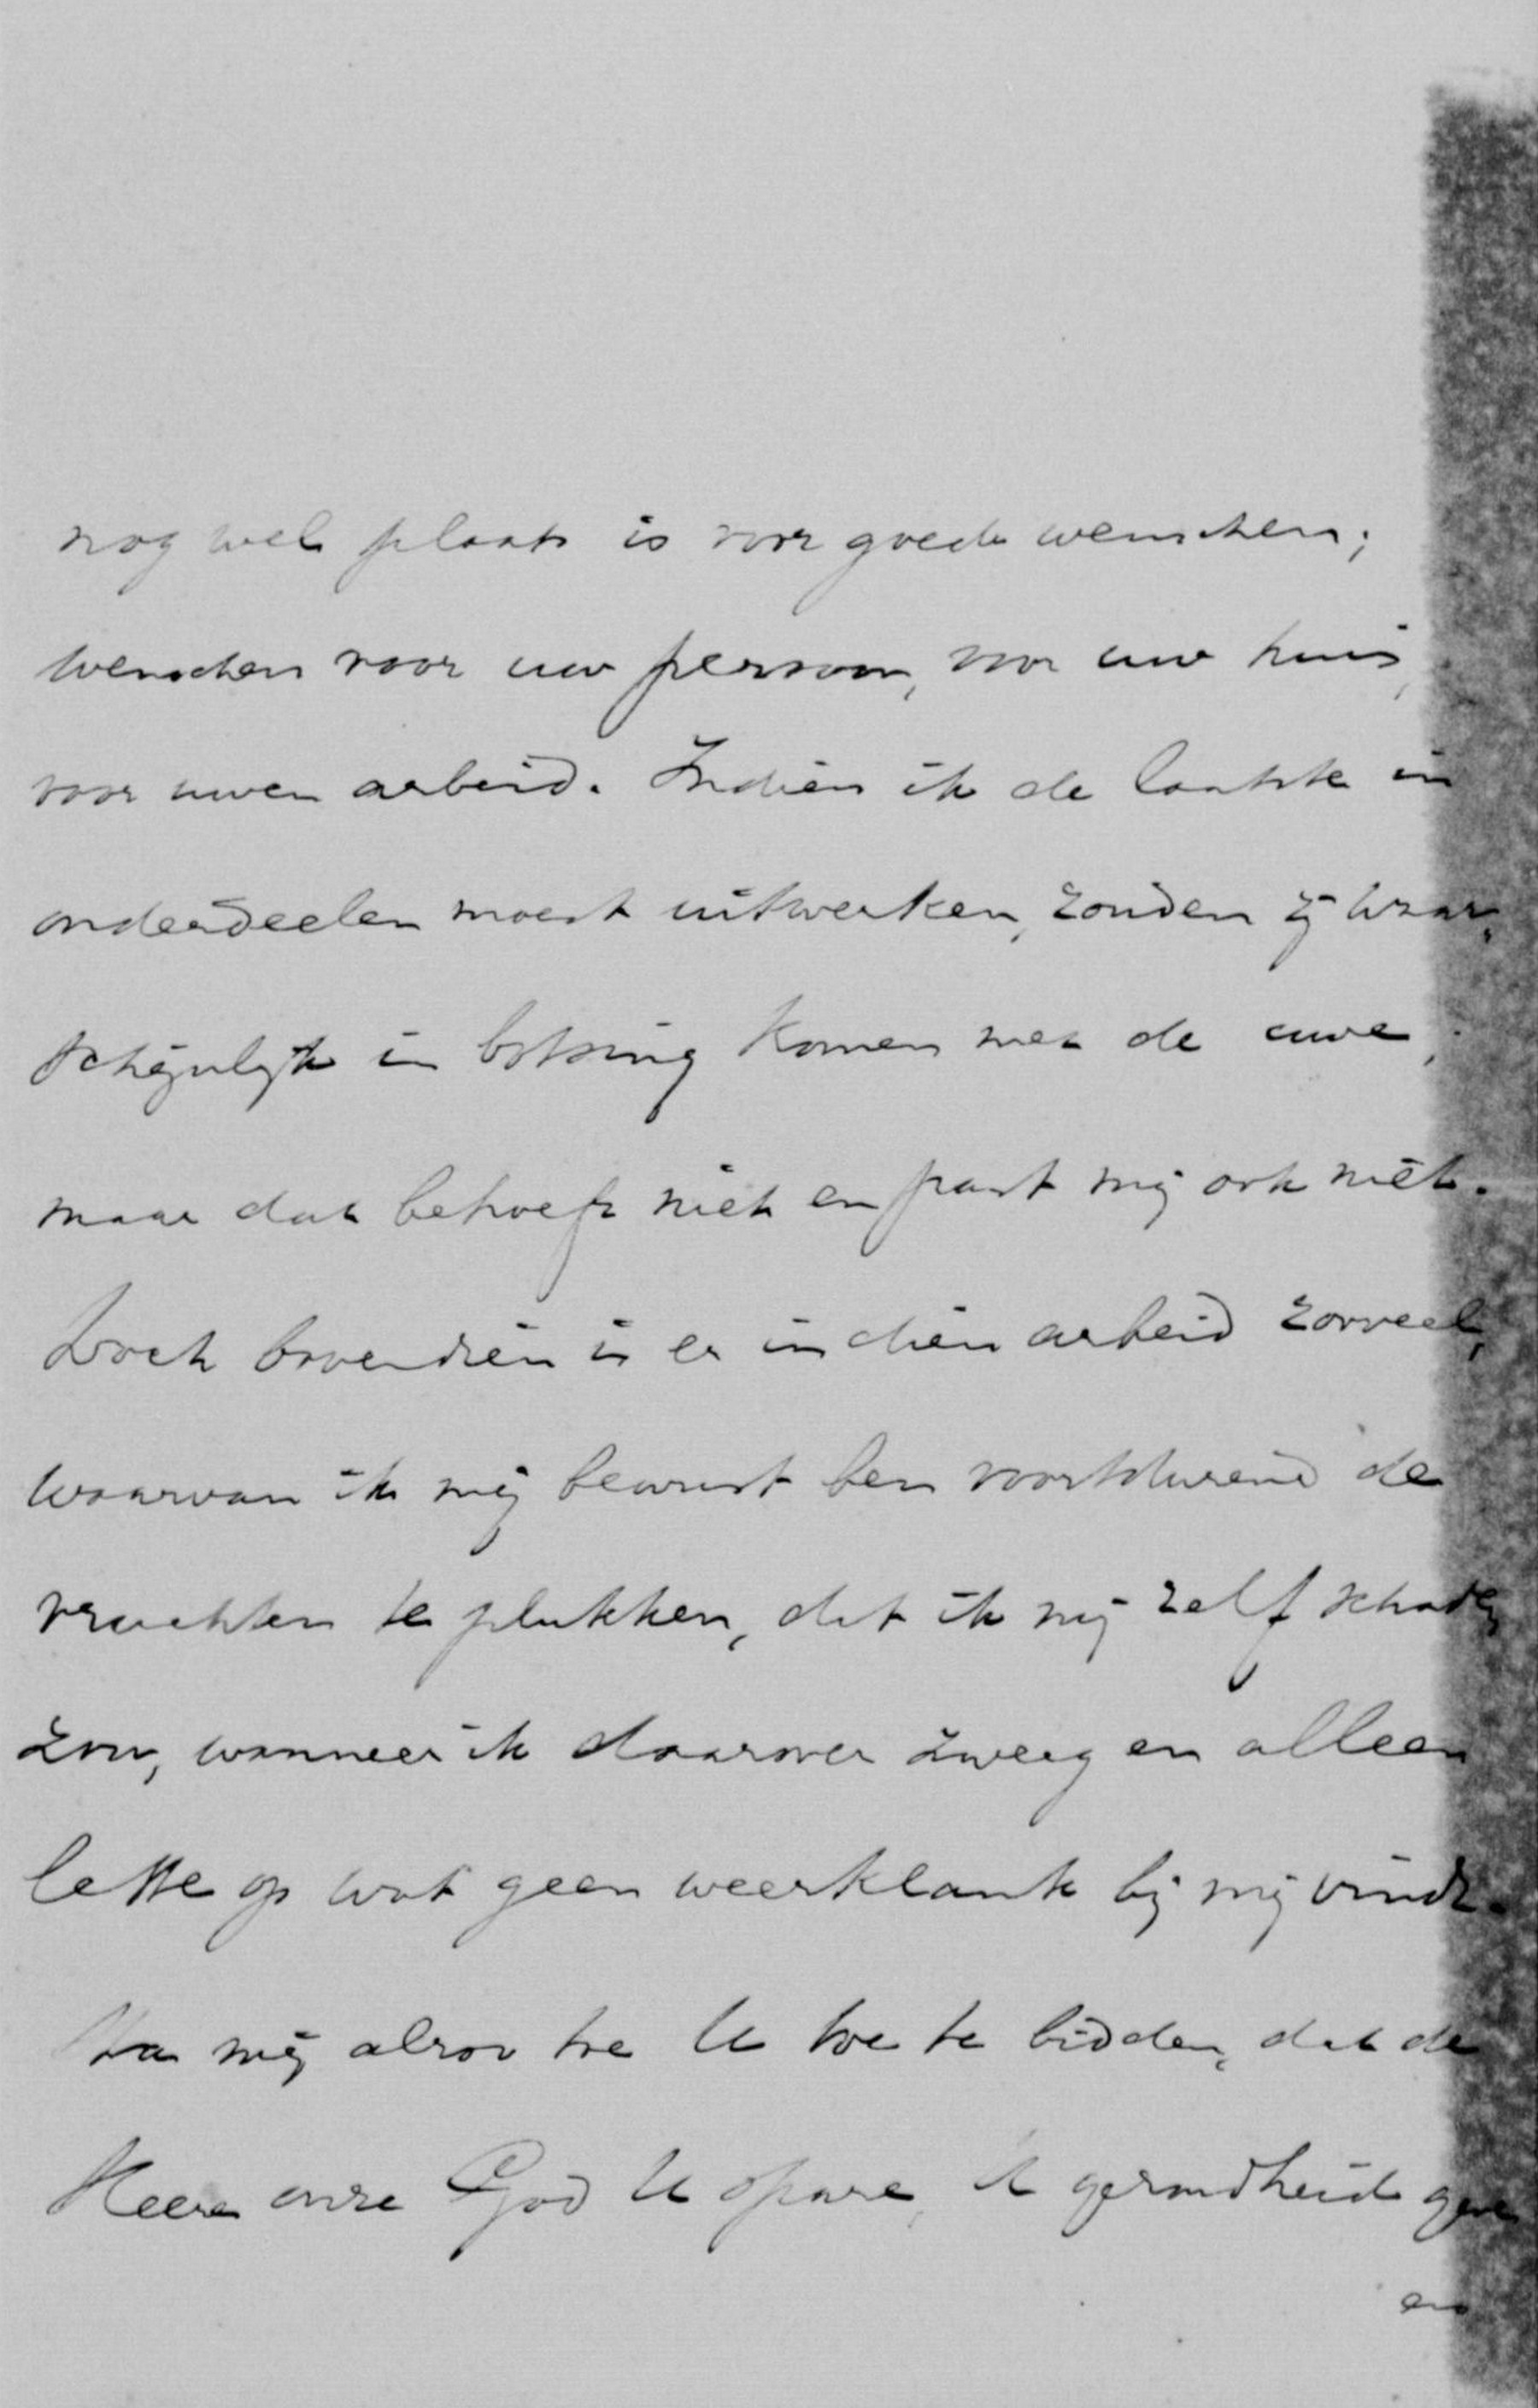 nog wel plaats is voor goede wenschen;
wenschen voor uw persoon, voor uw huis,
voor uwen arbeid. Indien ik de laatste in
onderdeelen moest uitwerken, zouden zij waar-
schijnlijk in botsing komen met de uwe;
maar dat behoeft niet en past mij ook niet.
Doch bovendien is er in dien arbeid zooveel,
waarvan ik mij bewust ben voortdurend de
vruchten te plukken, dat ik mij zelf schaden
zou, wanneer ik daarover zweeg en alleen
lette op wat geen weerklank bij mij vindt.
Sta mij alzoo toe U toe te bidden, dat de
Heere onze God U spare, U gezondheid geve
en